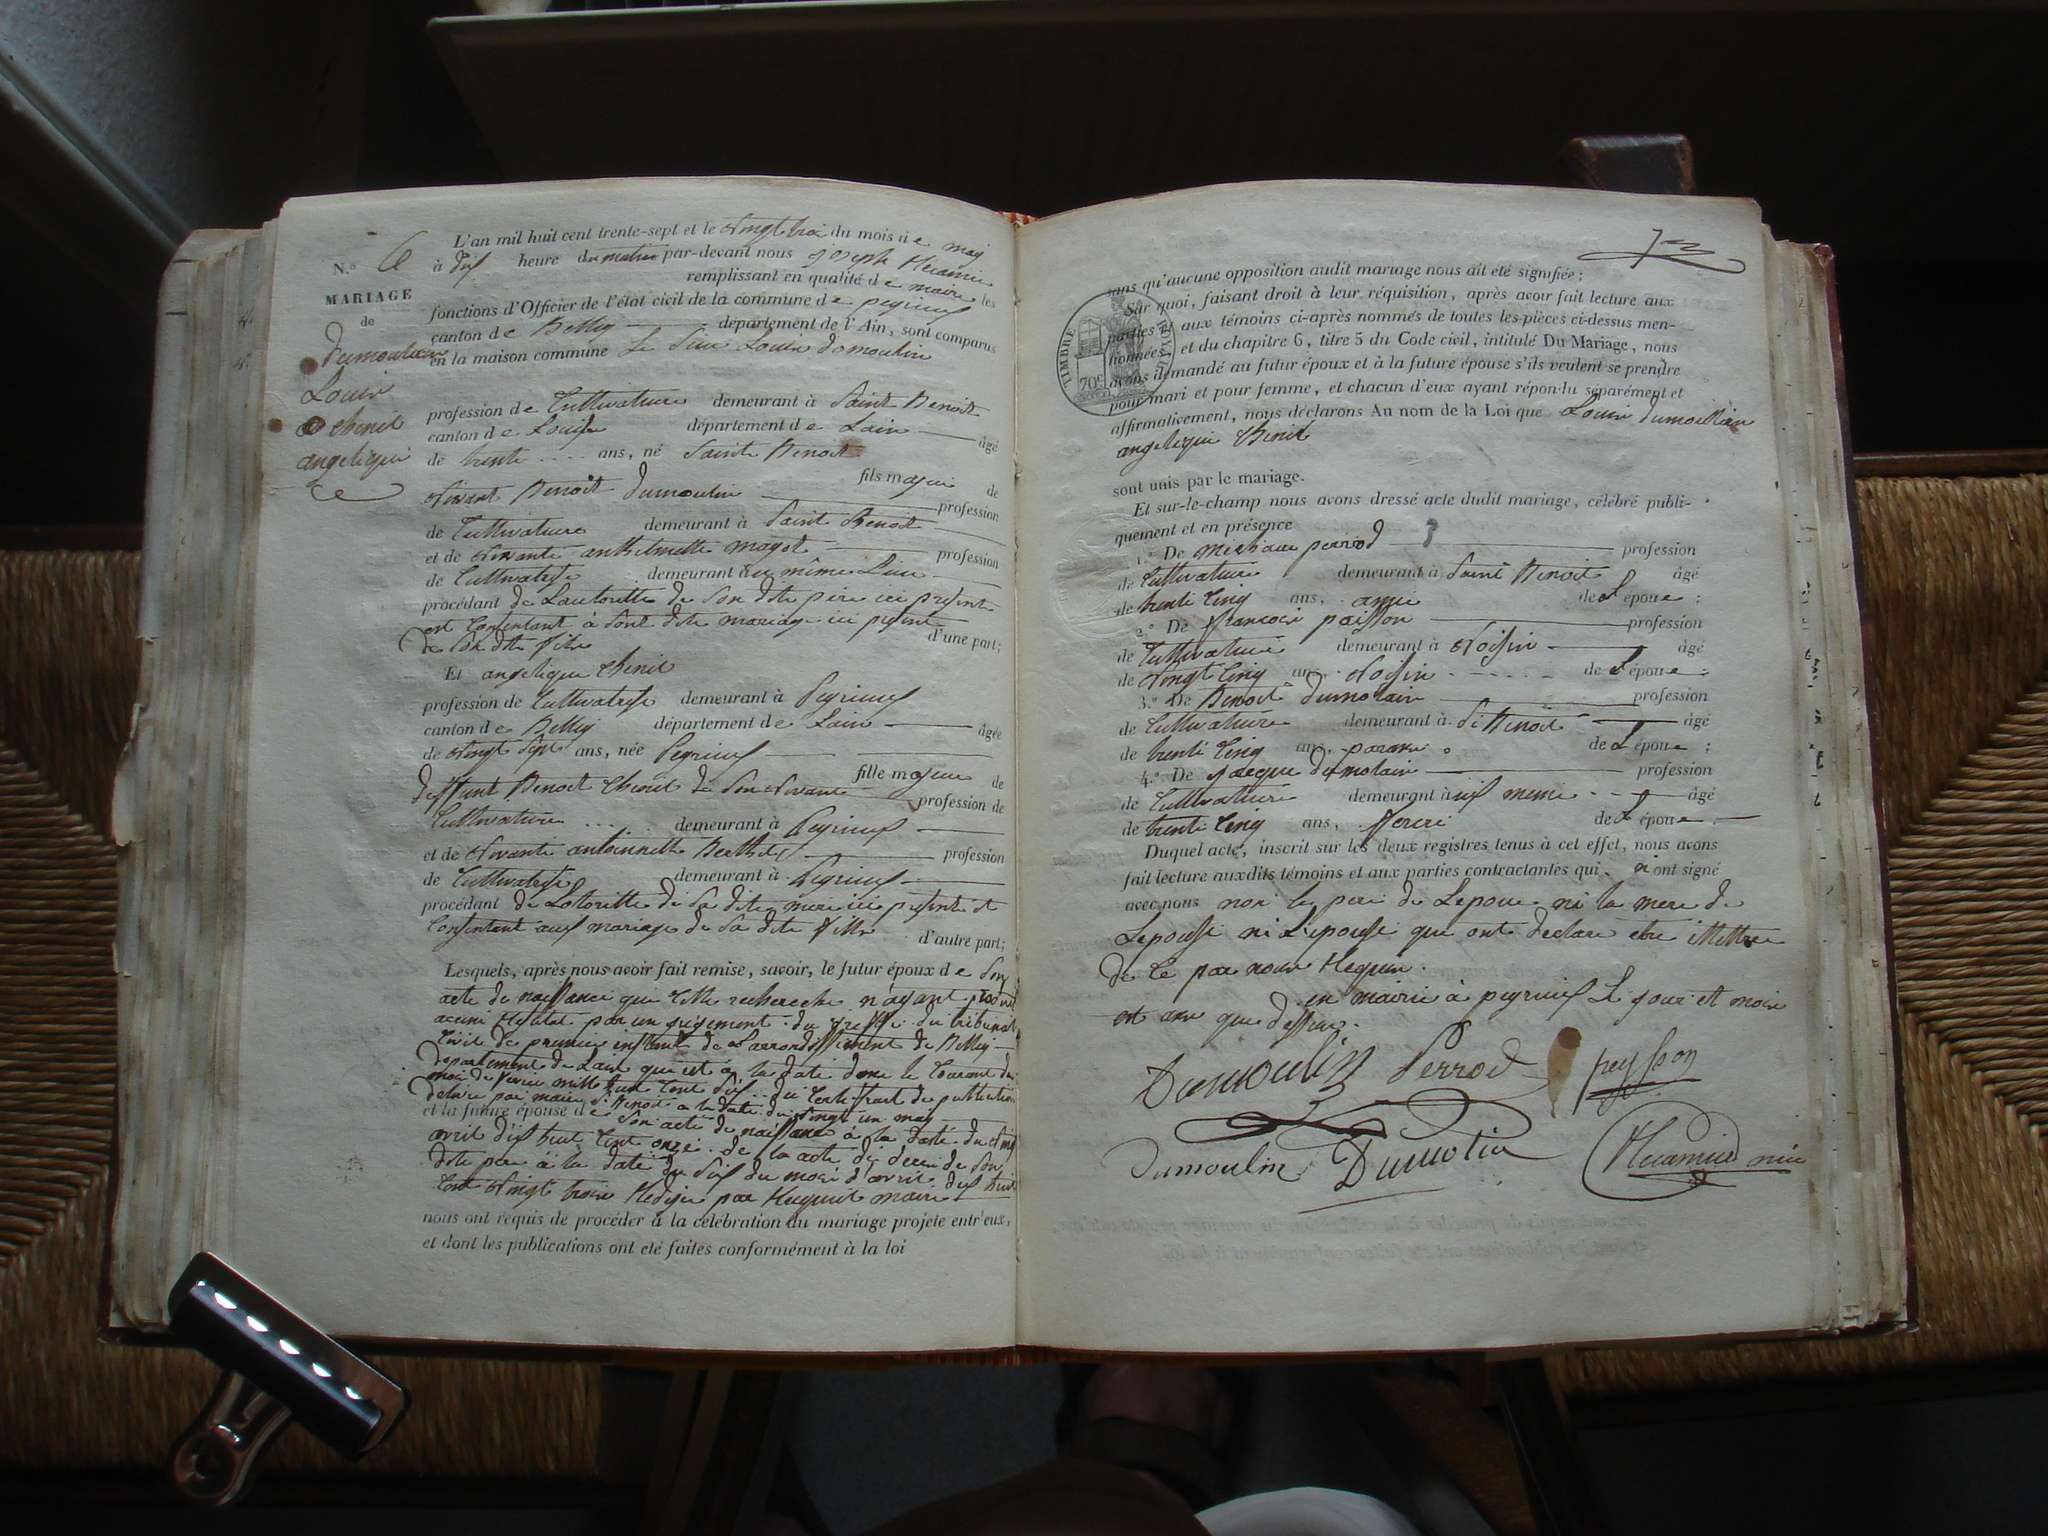 N.o 6
MARIAGE
de
dumoulin
Louis
et thenit
angelique
L'an mil huit cent trente-sept et le vingt trois du mois de may
à dix heure du matin par-devant nous joseph
remplissant en qualité de maire les
fonctions d'Officier de l'état civil de la commune de peyrieux
canton de Belley département de l'Ain, sont comparus
en la maison commune Le Sieur Louis domoulin
profession de Cultivature demeurant à Saint Benoit
canton de département de Lain âgé
de trente .... ans, né Sainte Benoit
fils majeur de
vivant Benoit dumoulin profession
de Cultivature demeurant à Saint Benoit
et de vivante anthelmette magot profession
de Cultivatrise demeurant au même Lieu
procédant de Lautoritte de Son dite père ici present
est Consentant à Sont dite mariage ici présent
de Son dite fils d'une part;
Et angelique thenit
profession de Cultivatrise demeurant à Peyrieux
canton de Belley département de Lain âgée
de vingt Sept ans, née Peyrieux
fille majeure de
deffunt Benoit thenit de Son vivant profession de
Cultivature .... demeurant à Peyrieux
et de vivante antoinnette Berthet profession
de Cultivatrise demeurant à Peyrieux
procédant de Lotoritte de Sa dite mere ici présente et
Consentant aux mariage de Sa dite fille d'autre part;
Lesquels, après nous avoir fait remise, savoir, le futur époux de Son
acte de naissance que telle recherche n'ayant
aucun par un jugement du greffe du tribunal
Civil de premier instant de Larrondissement de Belley
departement de Lain qui est à la date du Courant du
mois de mille huit Cent dix du Certifficat de publication
delivré par maire St Benoit à la date du vingt un may
et la future épouse de Son acte de naissance à la date du
avril dix huit Cent onze de la acte de decei de Son
dite pere à la date du Six du mois d'avril dix huit
Cent vingt trois Redijé par maire
nous ont requis de procéder à la célébration du mariage projeté entr'eux,
et dont les publications ont été faites conformément à la loi
TIMBRE ROYAL
70c
sans qu'aucune opposition audit mariage nous ait été signifiée;
Sur quoi, faisant droit à leur réquisition, après avoir fait lecture aux
parties et aux témoins ci-après nommés de toutes les pièces ci-dessus men-
tionnées, et du chapitre 6, titre 5 du Code civil, intitulé Du Mariage, nous
avons demandé au futur époux et à la future épouse s'ils veulent se prendre
pour mari et pour femme, et chacun d'eux ayant répondu séparément et
affirmativement, nous déclarons Au nom de la Loi que Louis dumoullin
angelique thenit
sont unis par le mariage.
Et sur-le-champ nous avons dressé acte dudit mariage, célébré publi-
quement et en présence
1.o De perrod profession
de Cultivature demeurant à Saint Benoit âgé
de trente Cinq ans, amie de L'époue;
2.o De francois paisson profession
de Cultivature demeurant à Voisin âgé
de vingt Cinq ans, Voisin de L'époue;
3.o De Benoit dumolain profession
de Cultivature demeurant à St Benoit âgé
de trente Cinq ans, de L'époue;
4.o De Jacque dumolain profession
de Cultivature demeurant à meme âgé
de trente Cinq ans, frere de L'époue.
Duquel acte, inscrit sur les deux registres tenus à cet effet, nous avons
fait lecture auxdits témoins et aux parties contractantes qui ont signé
avec nous non le pere de Lepoux ni la mere de
Lepousse ni Lepousse que ont declare etre illettree
de Ce par nous Requis.
en mairie à peyrieux Le jour et mois
et an que dessus.
Dumoulin Perrod peysson
dumoulin Dumolin